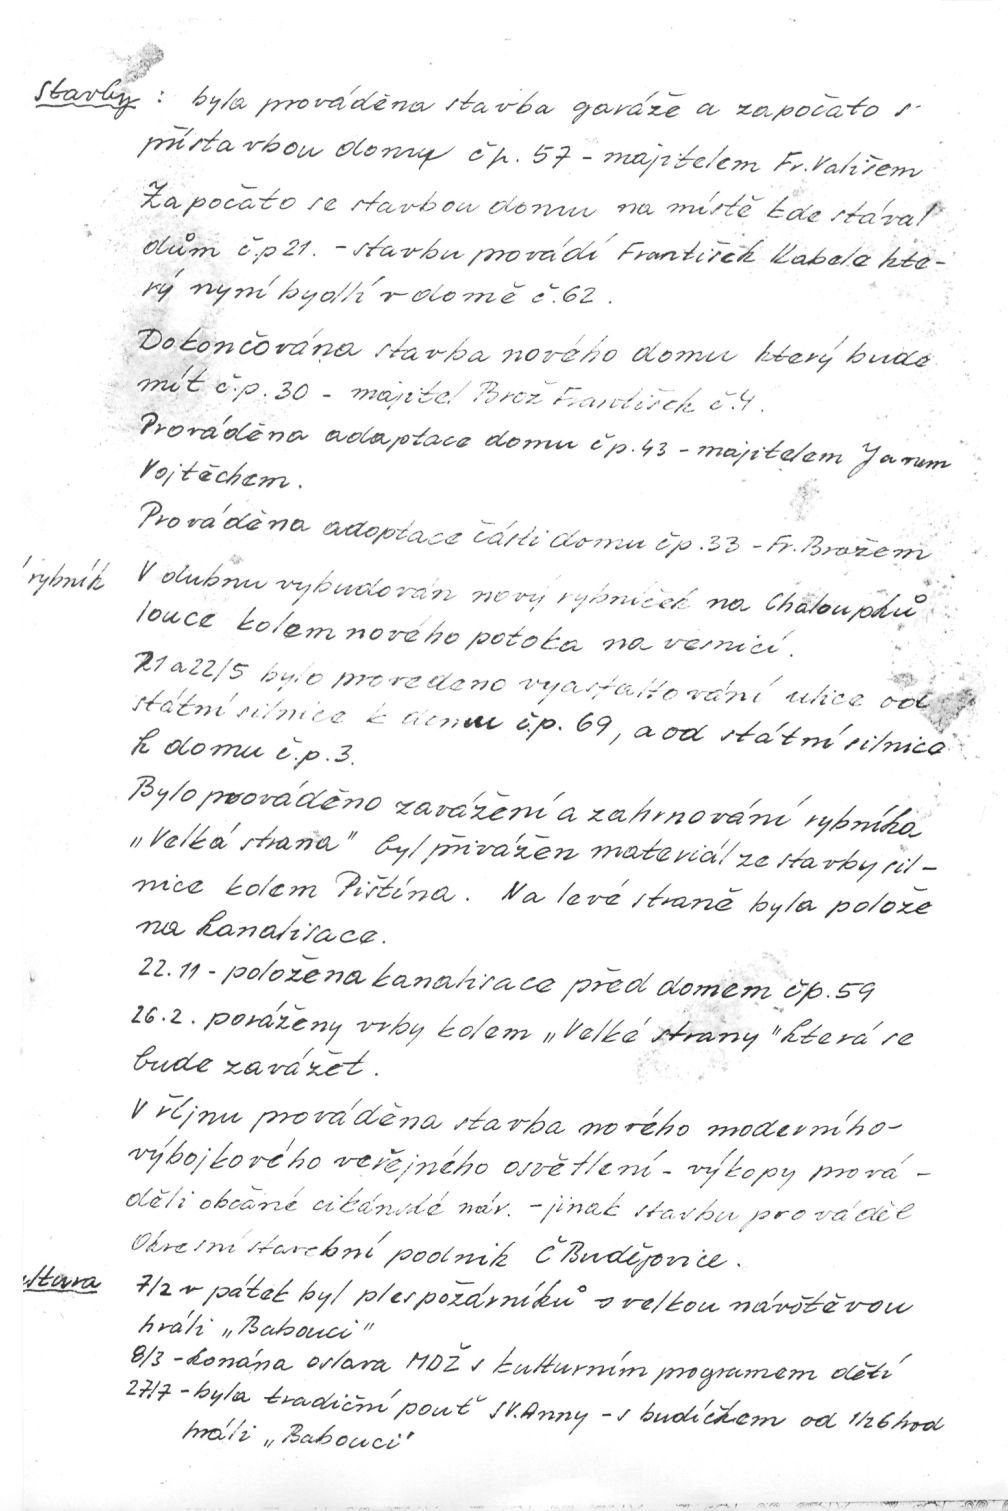 Stavby : byla prováděna stavba garáže a započato s
přístavbou domu čp. 57 - majitelem Fr. Vališem
Započato se stavbou domu na místě kde stával
dům č.p 21. - stavbu provádí František Kabele kte-
rý nyní bydlí v domě č. 62.
Dokončována stavba nového domu který bude
mít č.p. 30 - majitel Brož František č. 4.
Prováděna adaptace domu čp. 43 - majitelem Janem
Vojtěchem.
Prováděna adoptace části domu čp. 33 - Fr. Brožem
rybník V dubnu vybudován nový rybníček na Chaloupků
louce kolem nového potoka na vesnici.
21 a 22/5 bylo provedeno vyasfaltování ulice od
státní silnice k domu č.p. 69, a od státní silnice
k domu č.p. 3.
Bylo prováděno zavážení a zahrnování rybníka
„Velká strana" byl přivážen materiál ze stavby sil-
nice kolem Pištína. Na levé straně byla polože
na kanalisace.
22.11 - položena kanalisace před domem čp. 59
26.2. poráženy vrby kolem „Velké strany" která se
bude zavážet.
V říjnu prováděna stavba nového moderního-
výbojkového veřejného osvětlení - výkopy prová-
děli občané cikánské nár. - jinak stavbu prováděl
Okresní stavební podnik Č Budějovice.
ultura 7/2 v pátek byl ples požárníků s velkou návštěvou
hráli „Babouci"
8/3 - konána oslava MDŽ s kulturním programem dětí
27/7 - byla tradiční pouť SV. Anny - s budíčkem od 1/2 6 hod
hráli „Babouci"